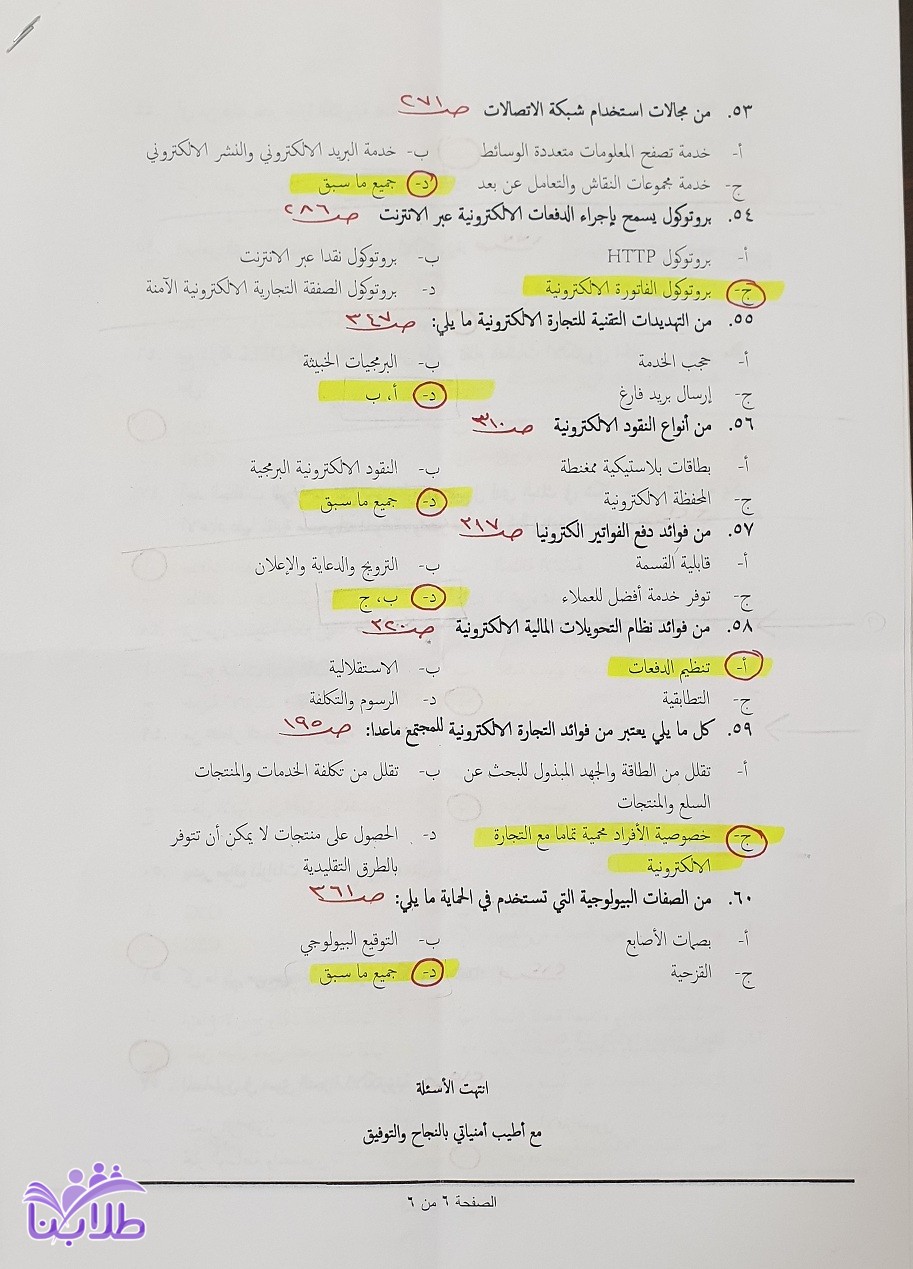 ٥٣. من مجالات استخدام شبكة الاتصالات ص٢٧١
أ- خدمة تصفح المعلومات متعددة الوسائط ب- خدمة البريد الالكتروني والنشر الالكتروني
ج- خدمة مجموعات النقاش والتعامل عن بعد د- جميع ما سبق
٥٤. بروتوكول يسمح بإجراء الدفعات الالكترونية عبر الانترنت ص٢٨٦
أ- بروتوكول HTTP ب- بروتوكول نقدا عبر الانترنت
ج- بروتوكول الفاتورة الالكترونية د- بروتوكول الصفقة التجارية الالكترونية الآمنة
٥٥. من التهديدات التقنية للتجارة الالكترونية ما يلي: ص٣٤٧
أ- حجب الخدمة ب- البرمجيات الخبيثة
ج- إرسال بريد فارغ د- أ، ب
٥٦. من أنواع النقود الالكترونية ص٣١٠
أ- بطاقات بلاستيكية ممغنطة ب- النقود الالكترونية البرمجية
ج- المحفظة الالكترونية د- جميع ما سبق
٥٧. من فوائد دفع الفواتير الكترونيا ص٣١٧
أ- قابلية القسمة ب- الترويج والدعاية والإعلان
ج- توفر خدمة أفضل للعملاء د- ب، ج
٥٨. من فوائد نظام التحويلات المالية الالكترونية ص٣٢٠
أ- تنظيم الدفعات ب- الاستقلالية
ج- التطابقية د- الرسوم والتكلفة
٥٩. كل ما يلي يعتبر من فوائد التجارة الالكترونية للمجتمع ماعدا: ص١٩٥
أ- تقلل من الطاقة والجهد المبذول للبحث عن ب- تقلل من تكلفة الخدمات والمنتجات
السلع والمنتجات
ج- خصوصية الأفراد محمية تماما مع التجارة د- الحصول على منتجات لا يمكن أن تتوفر
الالكترونية بالطرق التقليدية
٦٠. من الصفات البيولوجية التي تستخدم في الحماية ما يلي: ص٣٦١
أ- بصمات الأصابع ب- التوقيع البيولوجي
ج- القزحية د- جميع ما سبق
انتهت الأسئلة
مع أطيب أمنياتي بالنجاح والتوفيق
الصفحة ٦ من ٦
طلابنا